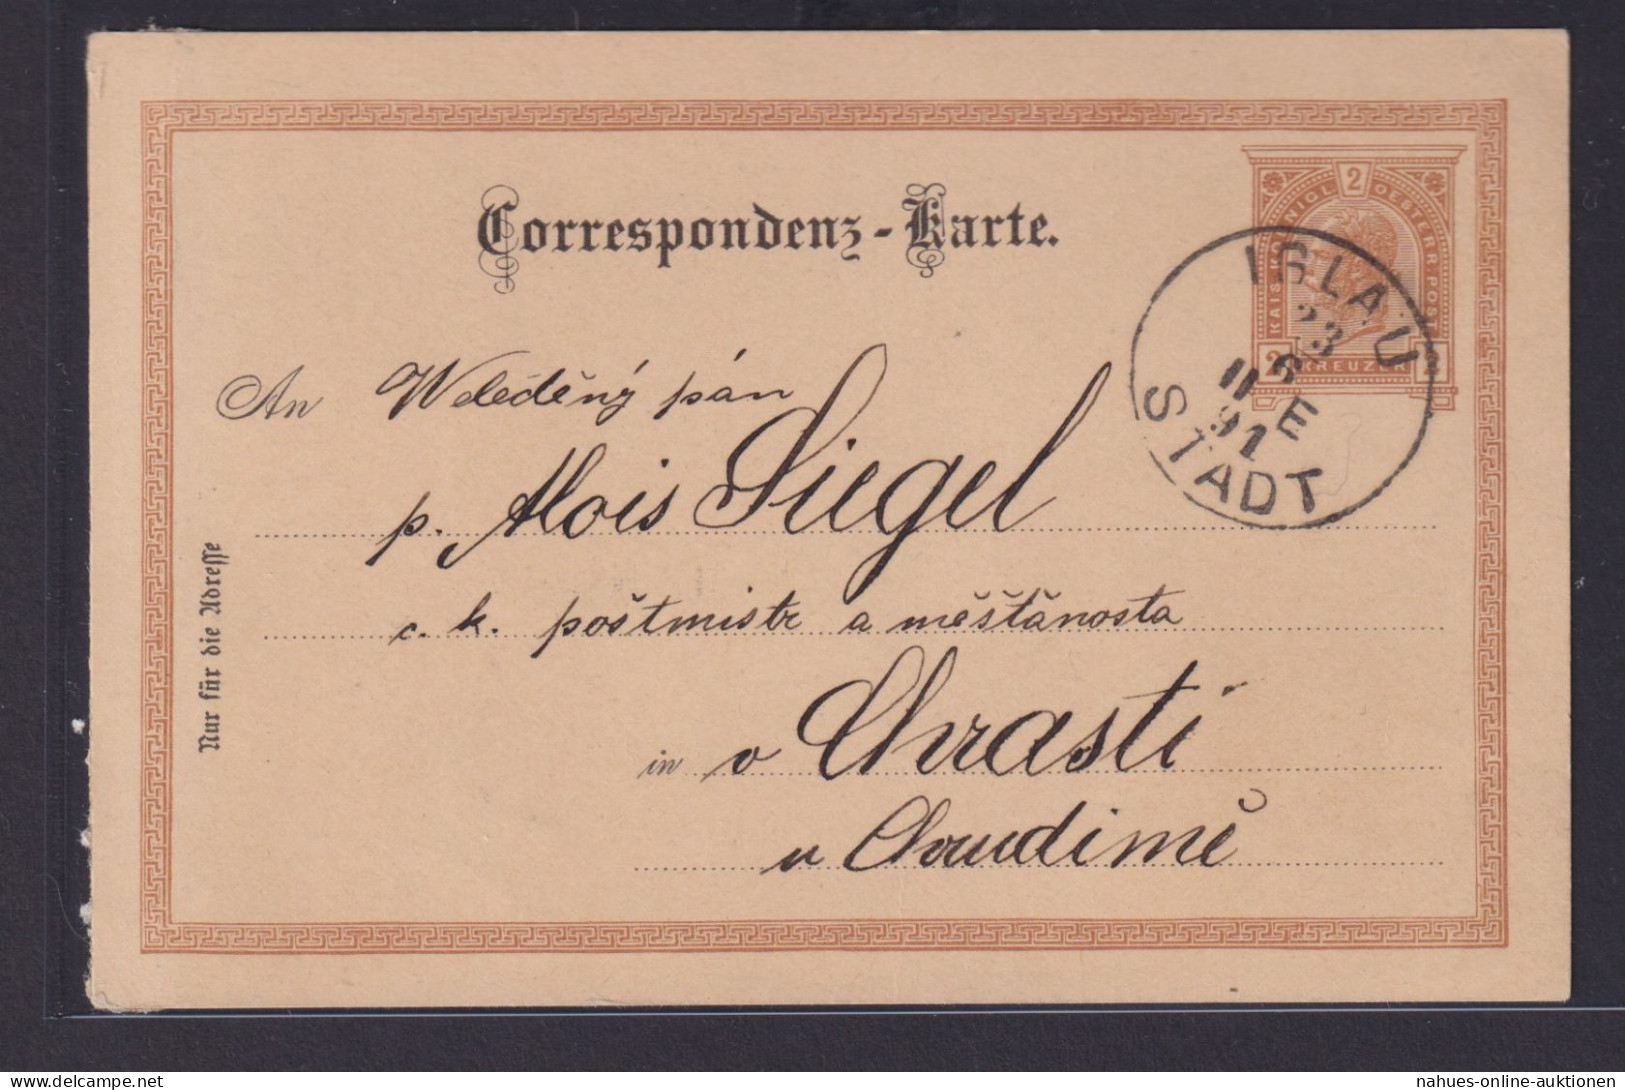 Correspondenz-Karte.
2
KAIS. KÖNIGL. OESTERR. POST
2 KREUZER 2
IGLAU
23
6
11 E
91
STADT
An Weleděný pán
p. Alois Siegel
c. k. poštmistr a měšťanosta
in v Chrasti
u Chrudimě
Nur für die Adresse
nahues-online-auktionen